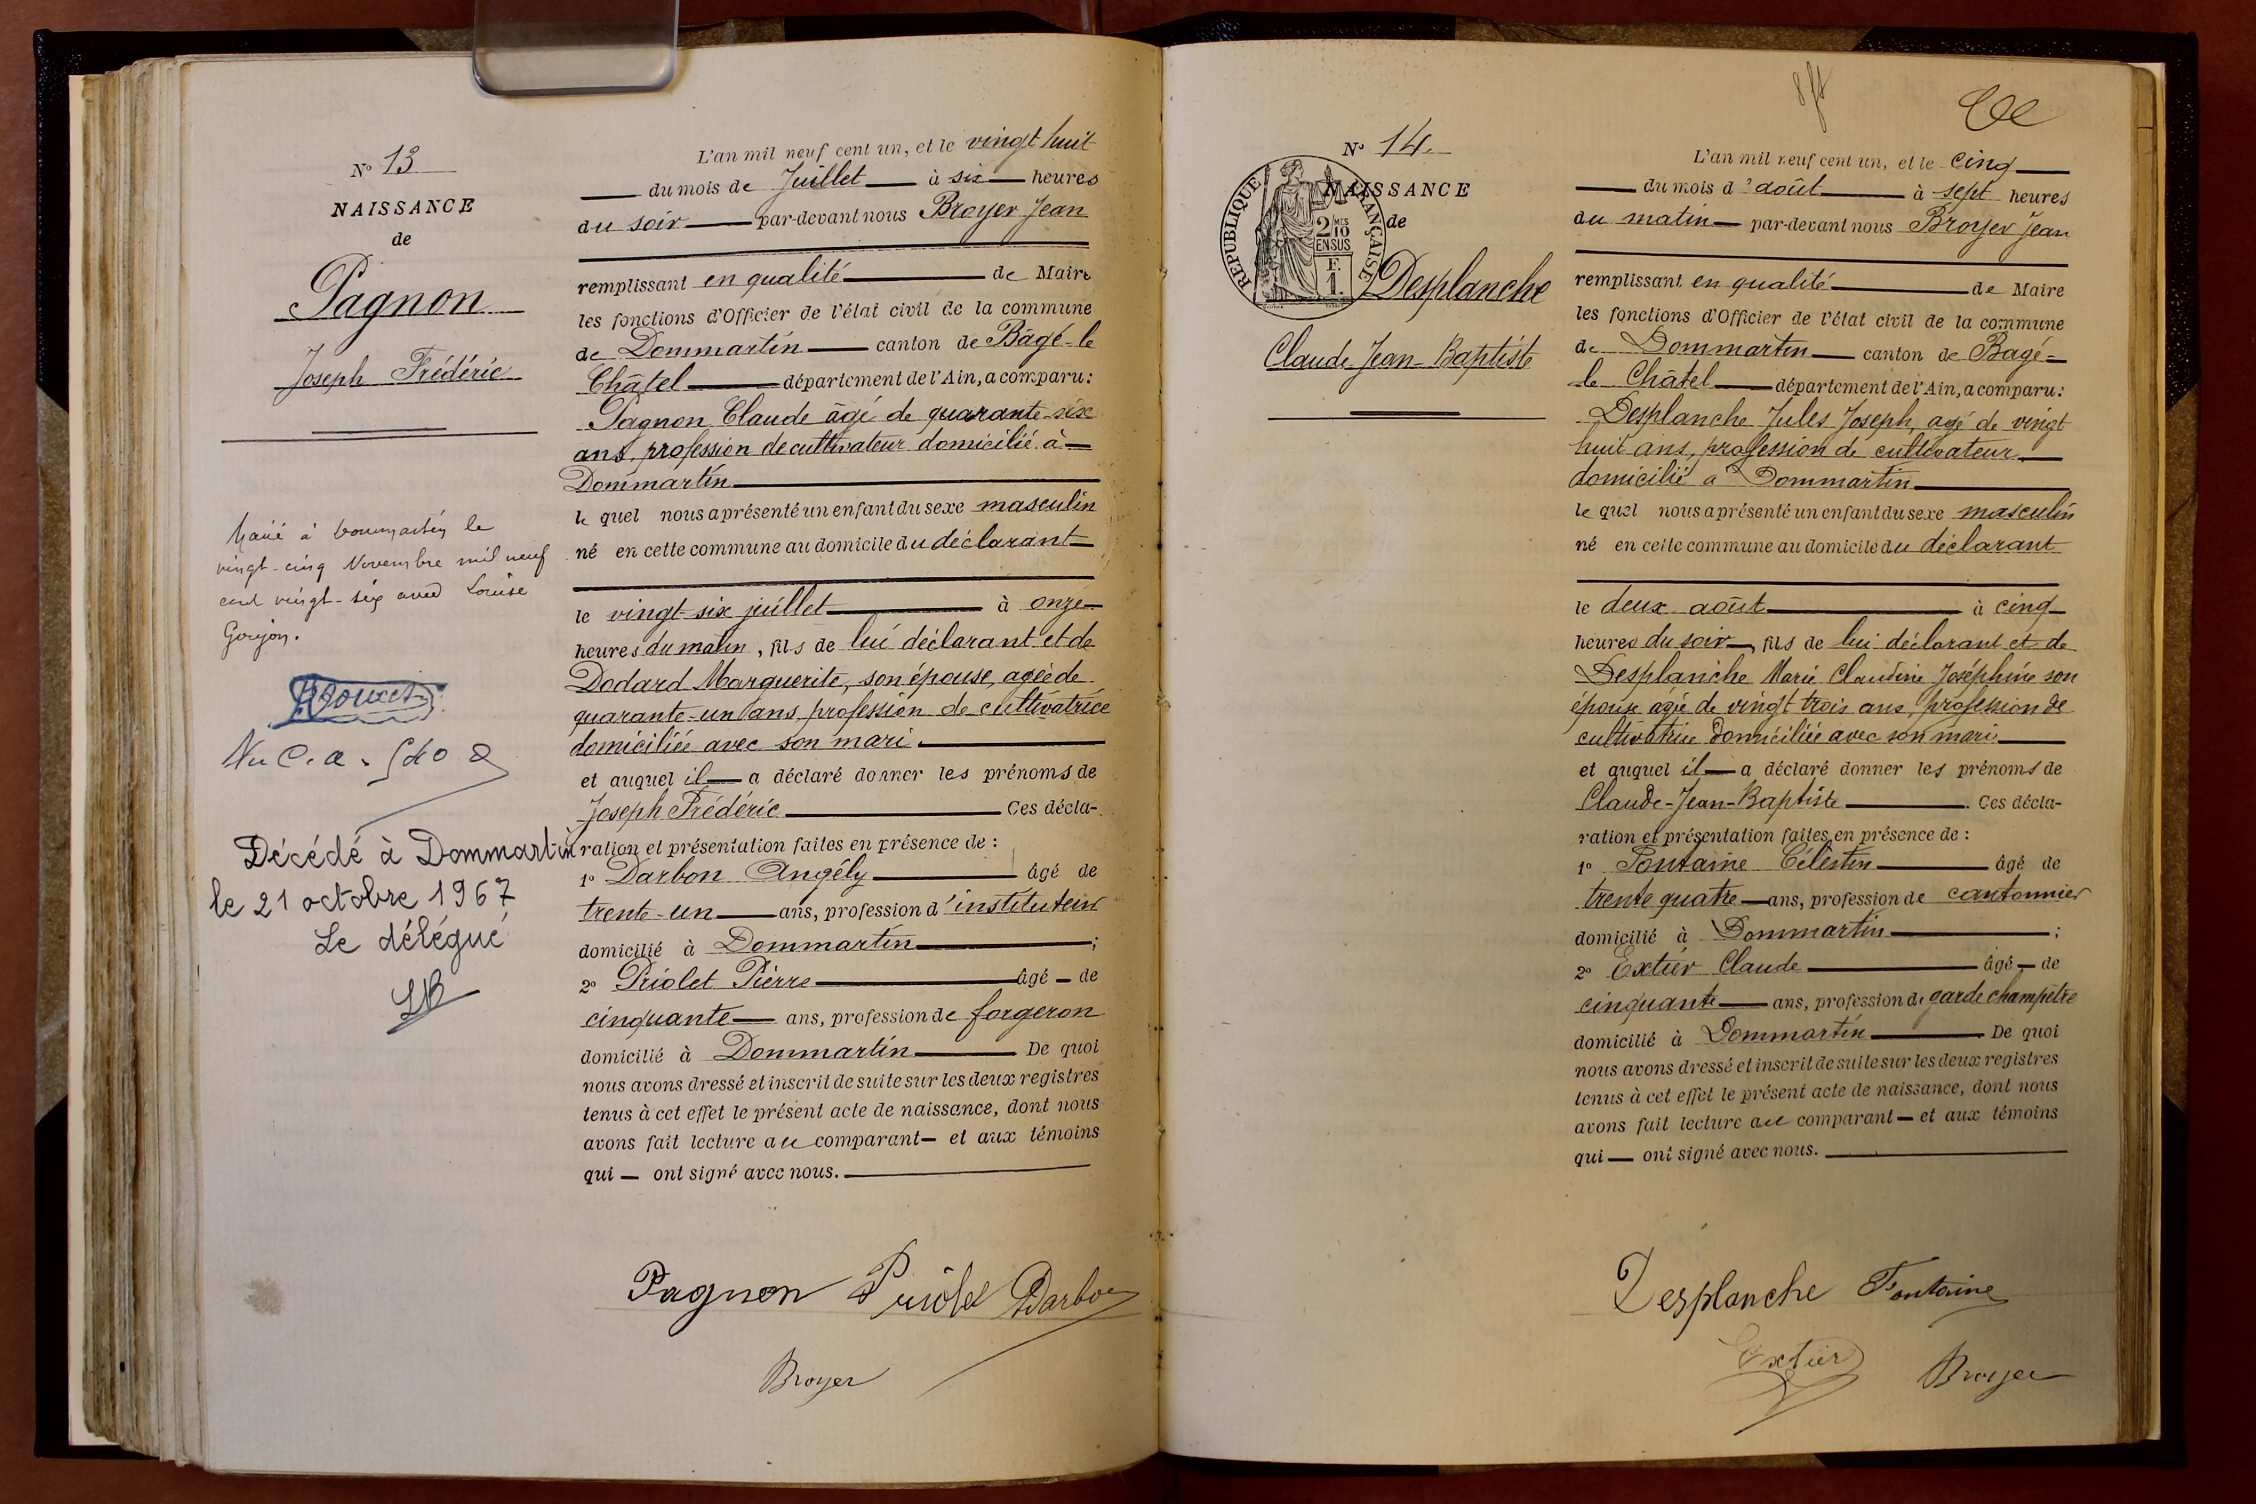 N° 13
NAISSANCE
de
Pagnon
Joseph Frédéric
Marié à Dommartin le
vingt-cinq Novembre mil neuf
cent vingt-six avec Louise
Goujon.
Décédé à Dommartin
le 21 octobre 1967
Le délégué
L'an mil neuf cent un, et le vingt huit
du mois de Juillet à six heures
du soir par-devant nous Broyer Jean
remplissant en qualité de Maire
les fonctions d'Officier de l'état civil de la commune
de Dommartin canton de Bâgé-le
Châtel département de l'Ain, a comparu:
Pagnon Claude âgé de quarante-six
ans, profession de cultivateur domicilié à
Dommartin
le quel nous a présenté un enfant du sexe masculin
né en cette commune au domicile du déclarant
le vingt-six juillet à onze
heures du matin, fils de lui déclarant et de
Dodard Marguerite, son épouse, agée de
quarante-un ans, profession de cultivatrice
domiciliée avec son mari
et auquel il a déclaré donner les prénoms de
Joseph Frédéric Ces décla-
ration et présentation faites en présence de :
1° Darbon Angély âgé de
trente-un ans, profession d'instituteur
domicilié à Dommartin ;
2° Priolet Pierre âgé de
cinquante ans, profession de forgeron
domicilié à Dommartin De quoi
nous avons dressé et inscrit de suite sur les deux registres
tenus à cet effet le présent acte de naissance, dont nous
avons fait lecture au comparant et aux témoins
qui ont signé avec nous.
Pagnon Priolet Darbon
Broyer
N° 14
NAISSANCE
de
RÉPUBLIQUE FRANÇAISE
2 MES
10
EN SUS
F.
1.
Desplanche
Claude Jean-Baptiste
L'an mil neuf cent un, et le cinq
du mois d'août à sept heures
du matin par-devant nous Broyer Jean
remplissant en qualité de Maire
les fonctions d'Officier de l'état civil de la commune
de Dommartin canton de Bagé-
le Châtel département de l'Ain, a comparu:
Desplanche Jules Joseph, agé de vingt
huit ans, profession de cultivateur
domicilié à Dommartin
le quel nous a présenté un enfant du sexe masculin
né en cette commune au domicile du déclarant
le deux août à cinq
heures du soir, fils de lui déclarant et de
Desplanche Marie Claudine Joséphine son
épouse âgée de vingt trois ans, profession de
cultivatrice domiciliée avec son mari
et auquel il a déclaré donner les prénoms de
Claude-Jean-Baptiste. Ces décla-
ration et présentation faites en présence de :
1° Fontaine Célestin âgé de
trente quatre ans, profession de cantonnier
domicilié à Dommartin ;
2° Extier Claude âgé de
cinquante ans, profession de garde champêtre
domicilié à Dommartin De quoi
nous avons dressé et inscrit de suite sur les deux registres
tenus à cet effet le présent acte de naissance, dont nous
avons fait lecture au comparant et aux témoins
qui ont signé avec nous.
Desplanche Fontaine
Extier Broyer